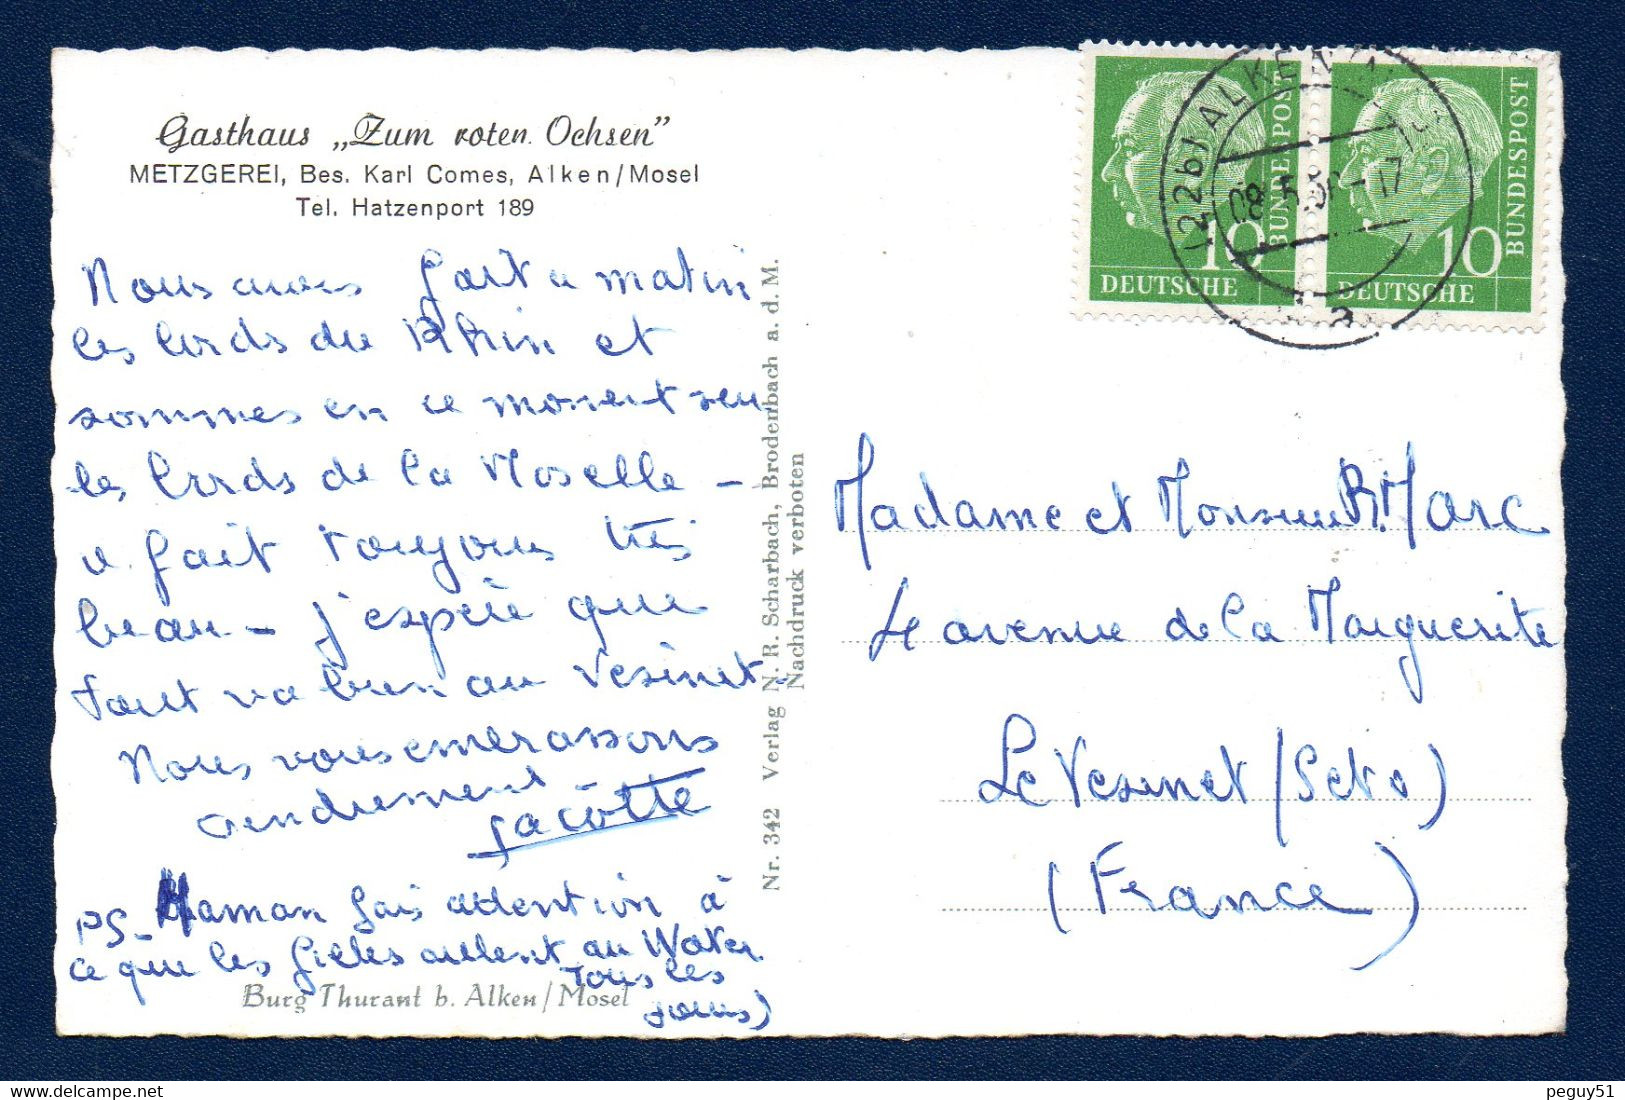 Gasthaus „Zum roten Ochsen"
METZGEREI, Bes. Karl Comes, Alken/Mosel
Tel. Hatzenport 189
Nous avons fait ce matin
les bords du Rhin et
sommes en ce moment sur
les bords de la Moselle –
il fait toujours très
beau – j'espère que
tout va bien au Vésinet –
Nous vous embrassons
tendrement
Jacotte
PS – Maman fais attention à
ce que les filles aillent au Water
tous les
jours)
Burg Thurant b. Alken/Mosel
Nr. 342 Verlag N. R. Scharbach, Brodenbach a. d. M.
Nachdruck verboten
DEUTSCHE BUNDESPOST 10
DEUTSCHE BUNDESPOST 10
(22b) ALKEN
08.5.58–17
a
Madame et Monsieur R. Marc
4 avenue de la Marguerite
Le Vesinet (Set o)
(France)
peguy51